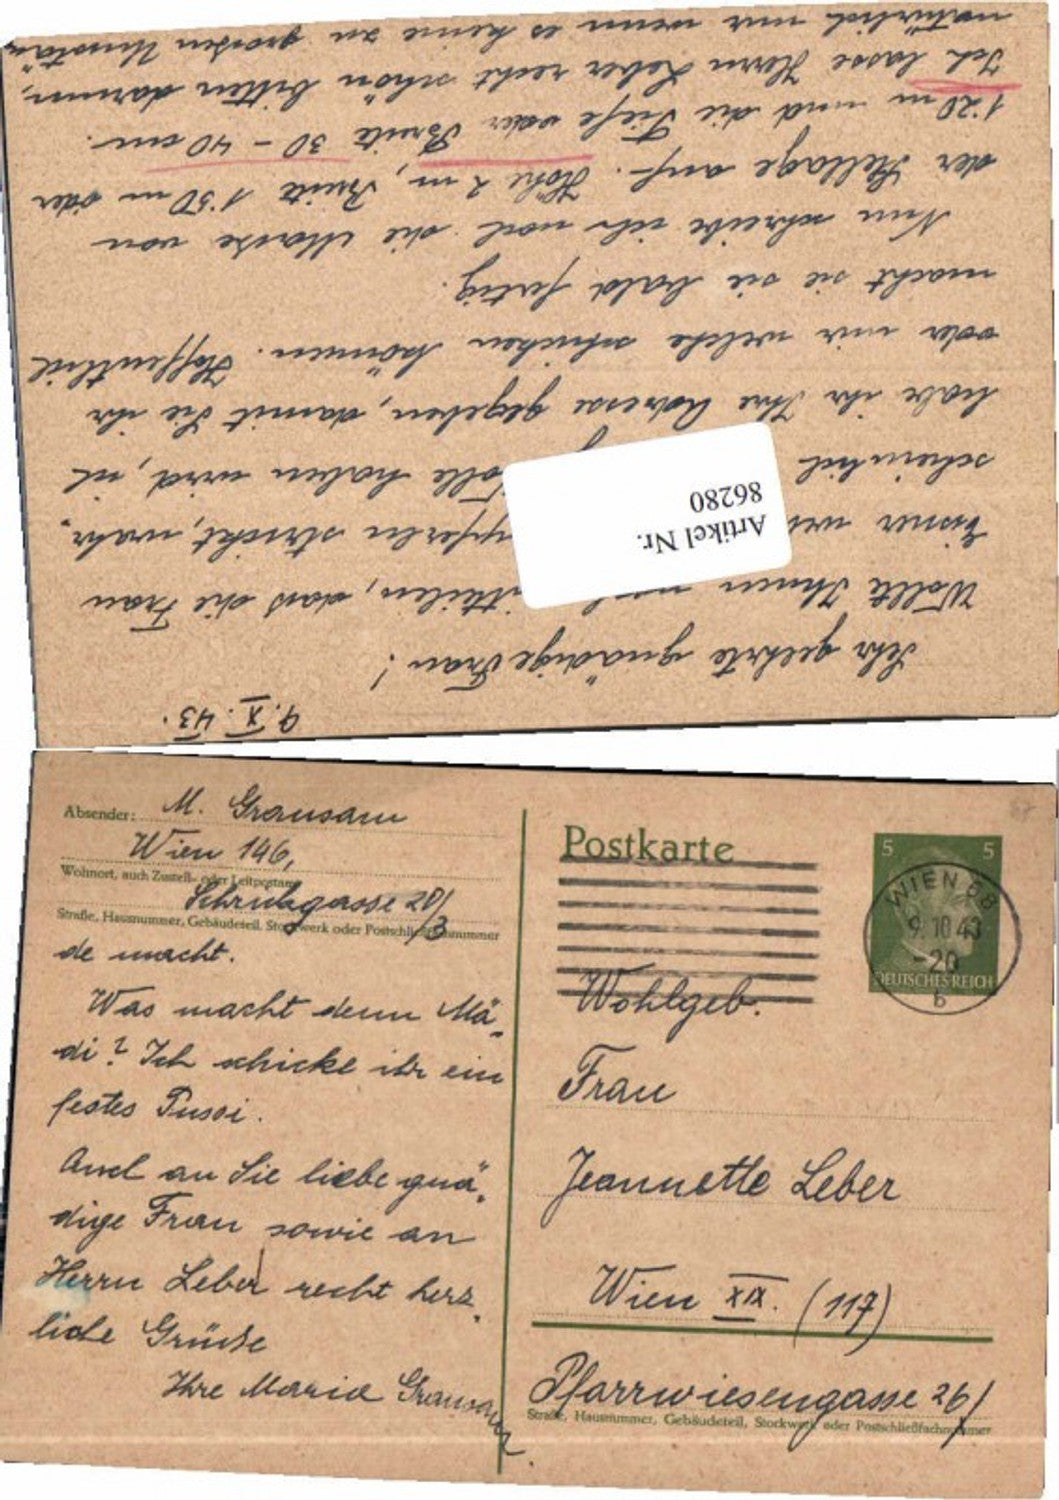 9. X. 43.
Sehr geehrte gnädige Frau!
Wollte Ihnen daß die Frau
Eisner strickt, wahr-
scheinlich haben wird, ich
habe ihr Ihre Adresse gegeben, damit Sie ihr
oder mir welche schicken können. Hoffentlich
macht sie sie bald fertig.
Nun schreibe ich noch die Maße von
der Stellage auf. Höhe 2 m, Breite 1'50 m oder
1'20 m und die Tiefe oder Breite 30 - 40 cm.
Ich lasse Herrn Leber recht schön bitten darum,
natürlich nur wenn es keine zu großen Umstän-
Artikel Nr.
86280
Absender: M. Grausam
Wien 146,
Wohnort, auch Zustell- oder Leitpostamt
20/3
Straße, Hausnummer, Gebäudeteil, Stockwerk oder Postschließfachnummer
de macht.
Was macht denn Mä-
di? Ich schicke ihr ein
festes Pussi.
Auch an Sie liebe gnä-
dige Frau sowie an
Herrn Leber recht herz-
liche Grüße
Ihre Maria Grausam.
Postkarte
5 5
DEUTSCHES REICH
WIEN 68
9.10.43
-20
b
Wohlgeb.
Frau
Jeannette Leber
Wien XIX. (117)
Pfarrwiesengasse 26/
Straße, Hausnummer, Gebäudeteil, Stockwerk oder Postschließfachnummer